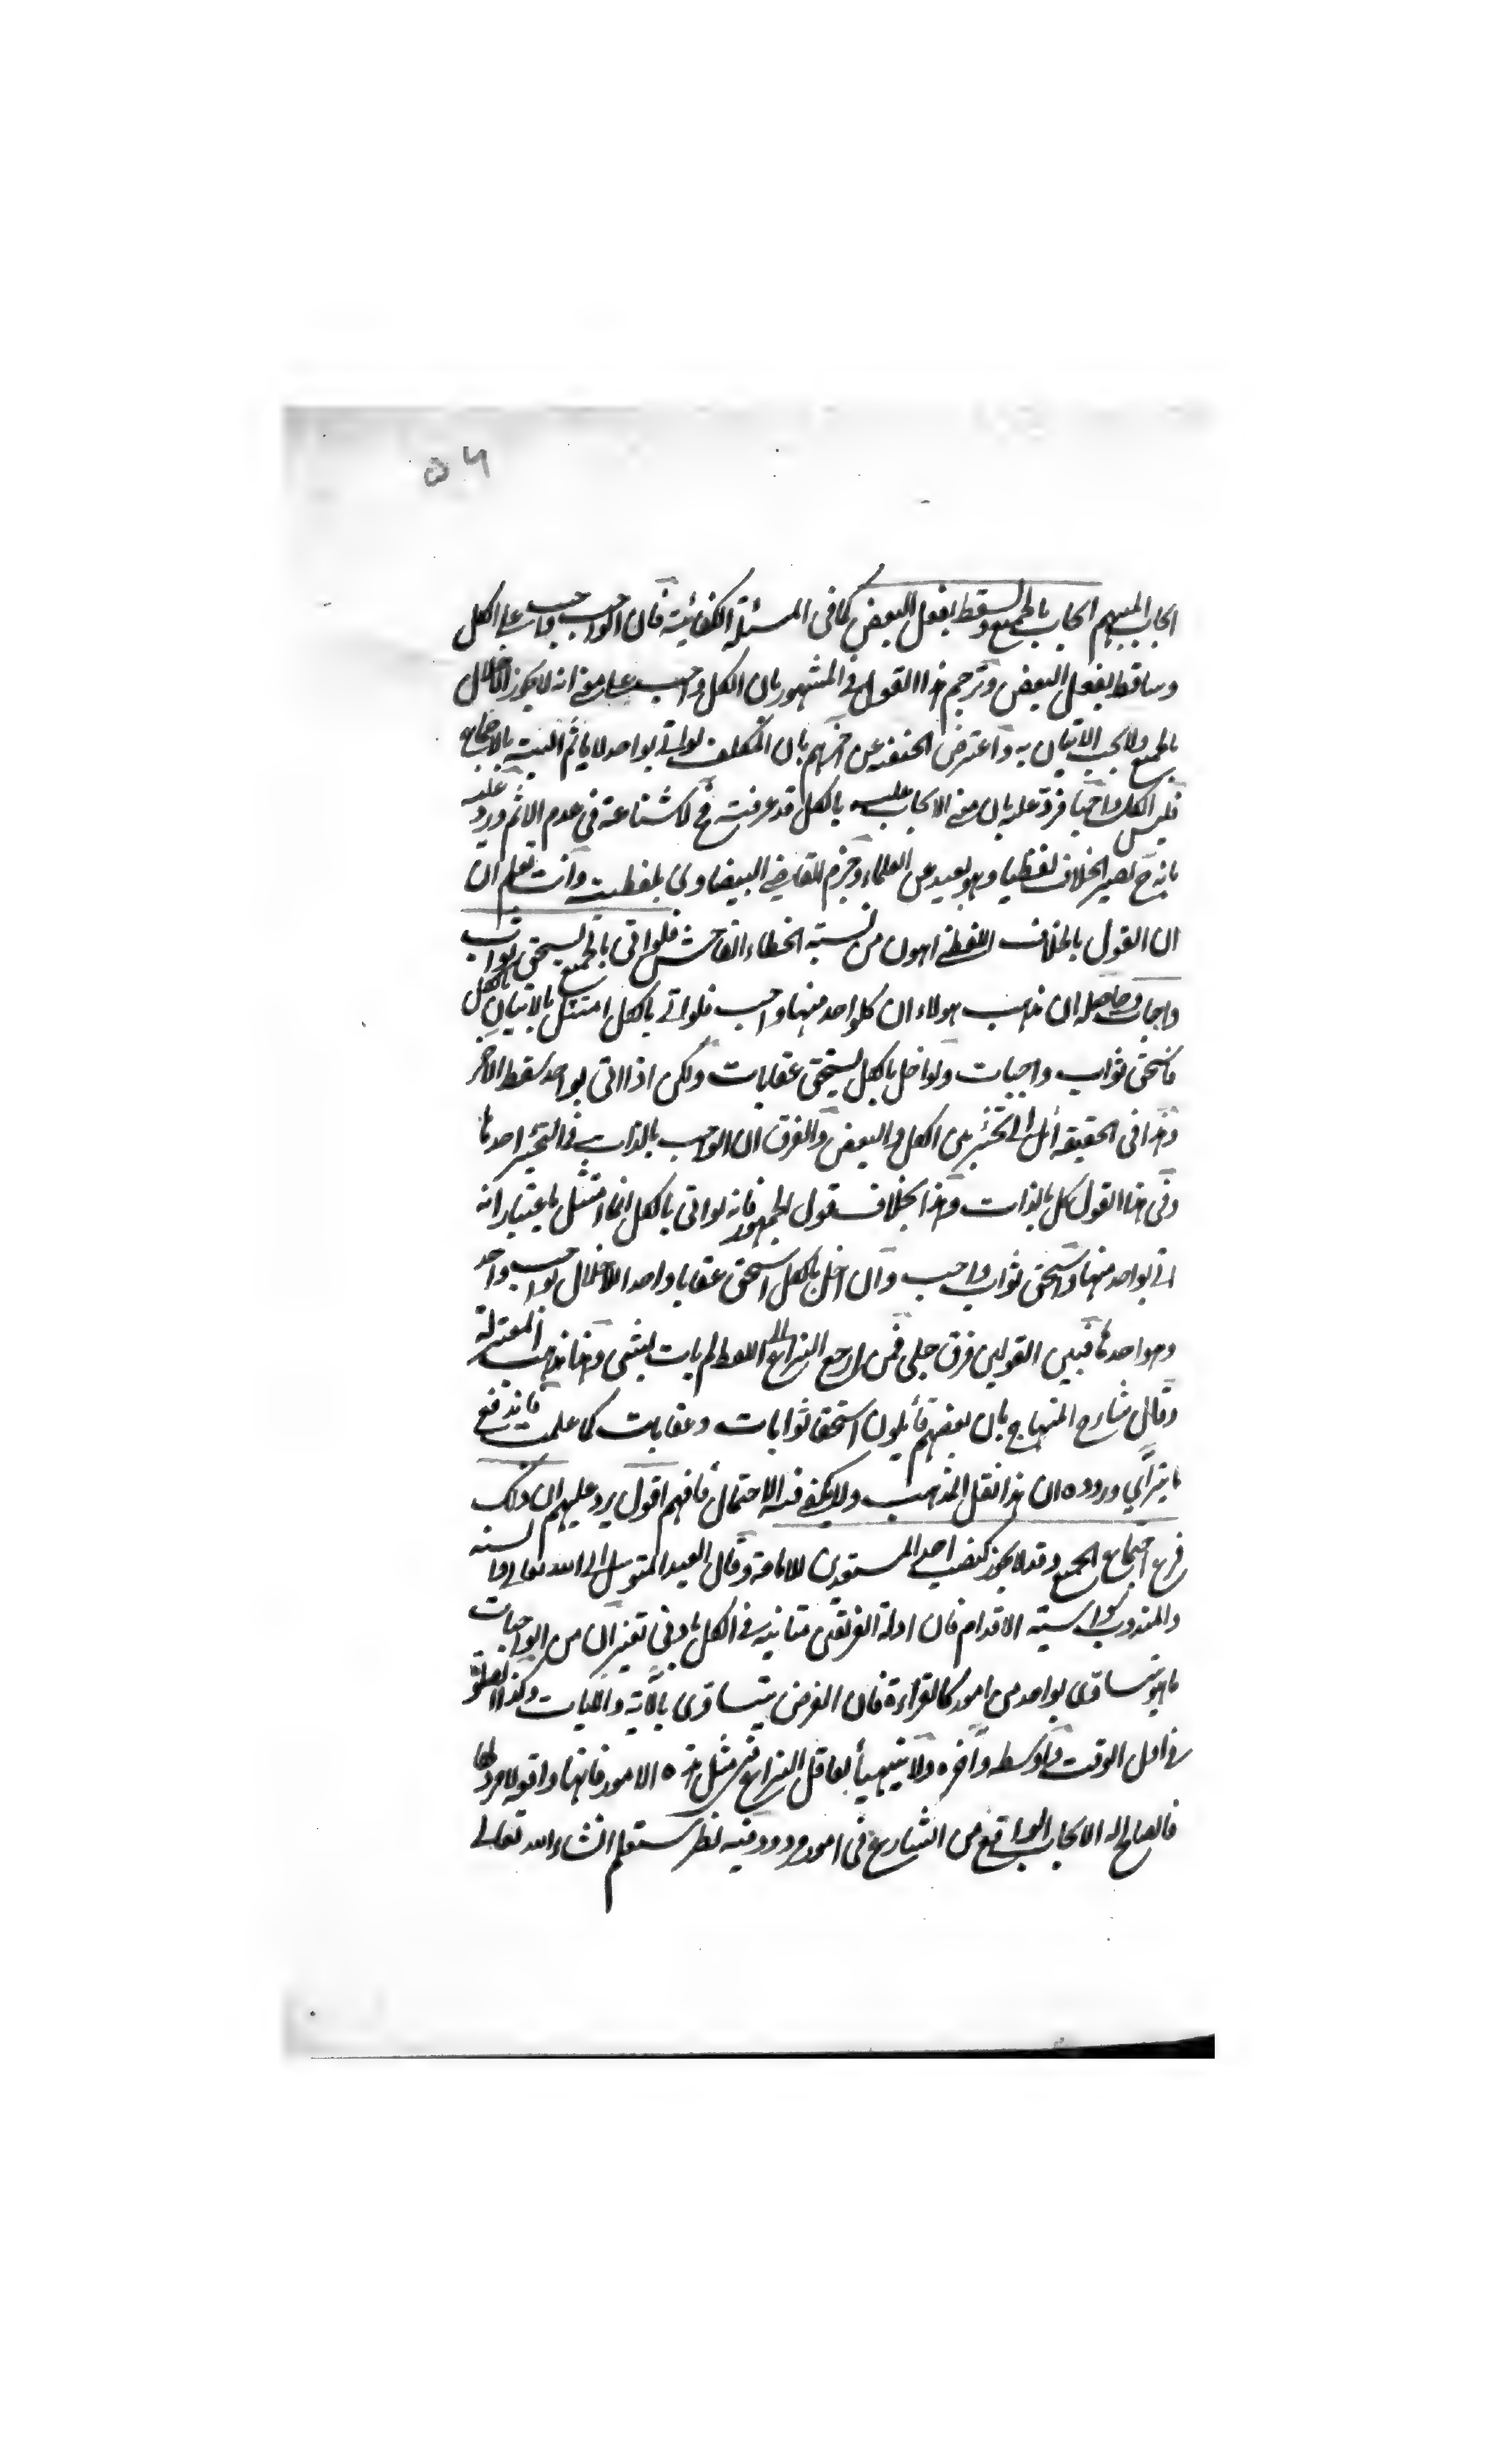 ٥٦
ايجاب المبهم ايجاب بالجميع ويسقط بفعل البعض كما في المسئلة الكفائية فان الواجب واجب على الكل
وساقط بفعل البعض وترجم هذا القول في المشهور بان الكل واجب على معنى انه لا يجوز الاخلال
بالجميع ولا يجب الاتيان به واعترض بان المكلف لو اتى بواحد لا ياثم البتة بالاجماع
فليس الكل واجبا فرد عليه بان معنى الايجاب بالكل قد عرفت فح لا شناعة في عدم الاثم ورد عليه
بانه ح يصير الخلاف لفظيا وهو بعيد عن العلماء وجزم القاضي البيضاوي بلفظيته وانت تعلم ان
ان القول بالخلاف اللفظي اهون من نسبة الخطاء الفاحش فلو اتى بالجميع يستحق ثواب
واجبات وحاصله ان مذهب هولاء ان كل واحد منها واجب فلو اتى بالكل امتثل بالاتيان بالكل
فاستحق ثواب واجبات ولو اخل بالكل يستحق عقابات ولكن اذا اتى بواحد سقط الاخر
وهذا في الحقيقة التخيير بين الكل والبعض والفرق ان الواجب بالذات في التخيير احدها
وفي هذا القول كل بالذات وهذا بخلاف قول الجمهور فانه لو اتى بالكل انما امتثل باعتبار انه
اتى بواحد منها واستحق ثواب واجب وان اخل بالكل استحق عقابا واحدا لاخلال بواجب واحد
وهو احدها فبين القولين فرق جلي فمن ارجع النزاع الى اللفظ لم يات بشي وهذا مذهب المعتزلة
وقال شارح المنهاج بان بعضهم قائلون استحق ثوابات وعقابات كما علمت فاندفع
ما يترأي وروده ان هذا نقل المذهب ولا يكفي فيه الاحتمال فافهم اقول يرد عليهم ان ذلك
فرع اجتماع الجميع وقد لا يجوز كنصب احد المستعدين للامامة وقال العبد المتوسل الى الله تعالى
والمندوب الاقدام فان ادلة الفريقين في الكل بادنى من الواجبات
ما هو يتساوى بواحد من امور كالقراءة فان الفرض يتساوى بالآية والآيات وكذا الصلوة
في اول الوقت واوسطه وآخره ولا يتهيأ لعاقل النزاع في مثل هذه الامور فانها
فالصالح له الايجاب الواقع من الشارع في امور وفيه نظر ستعلم انشاء الله تعالى